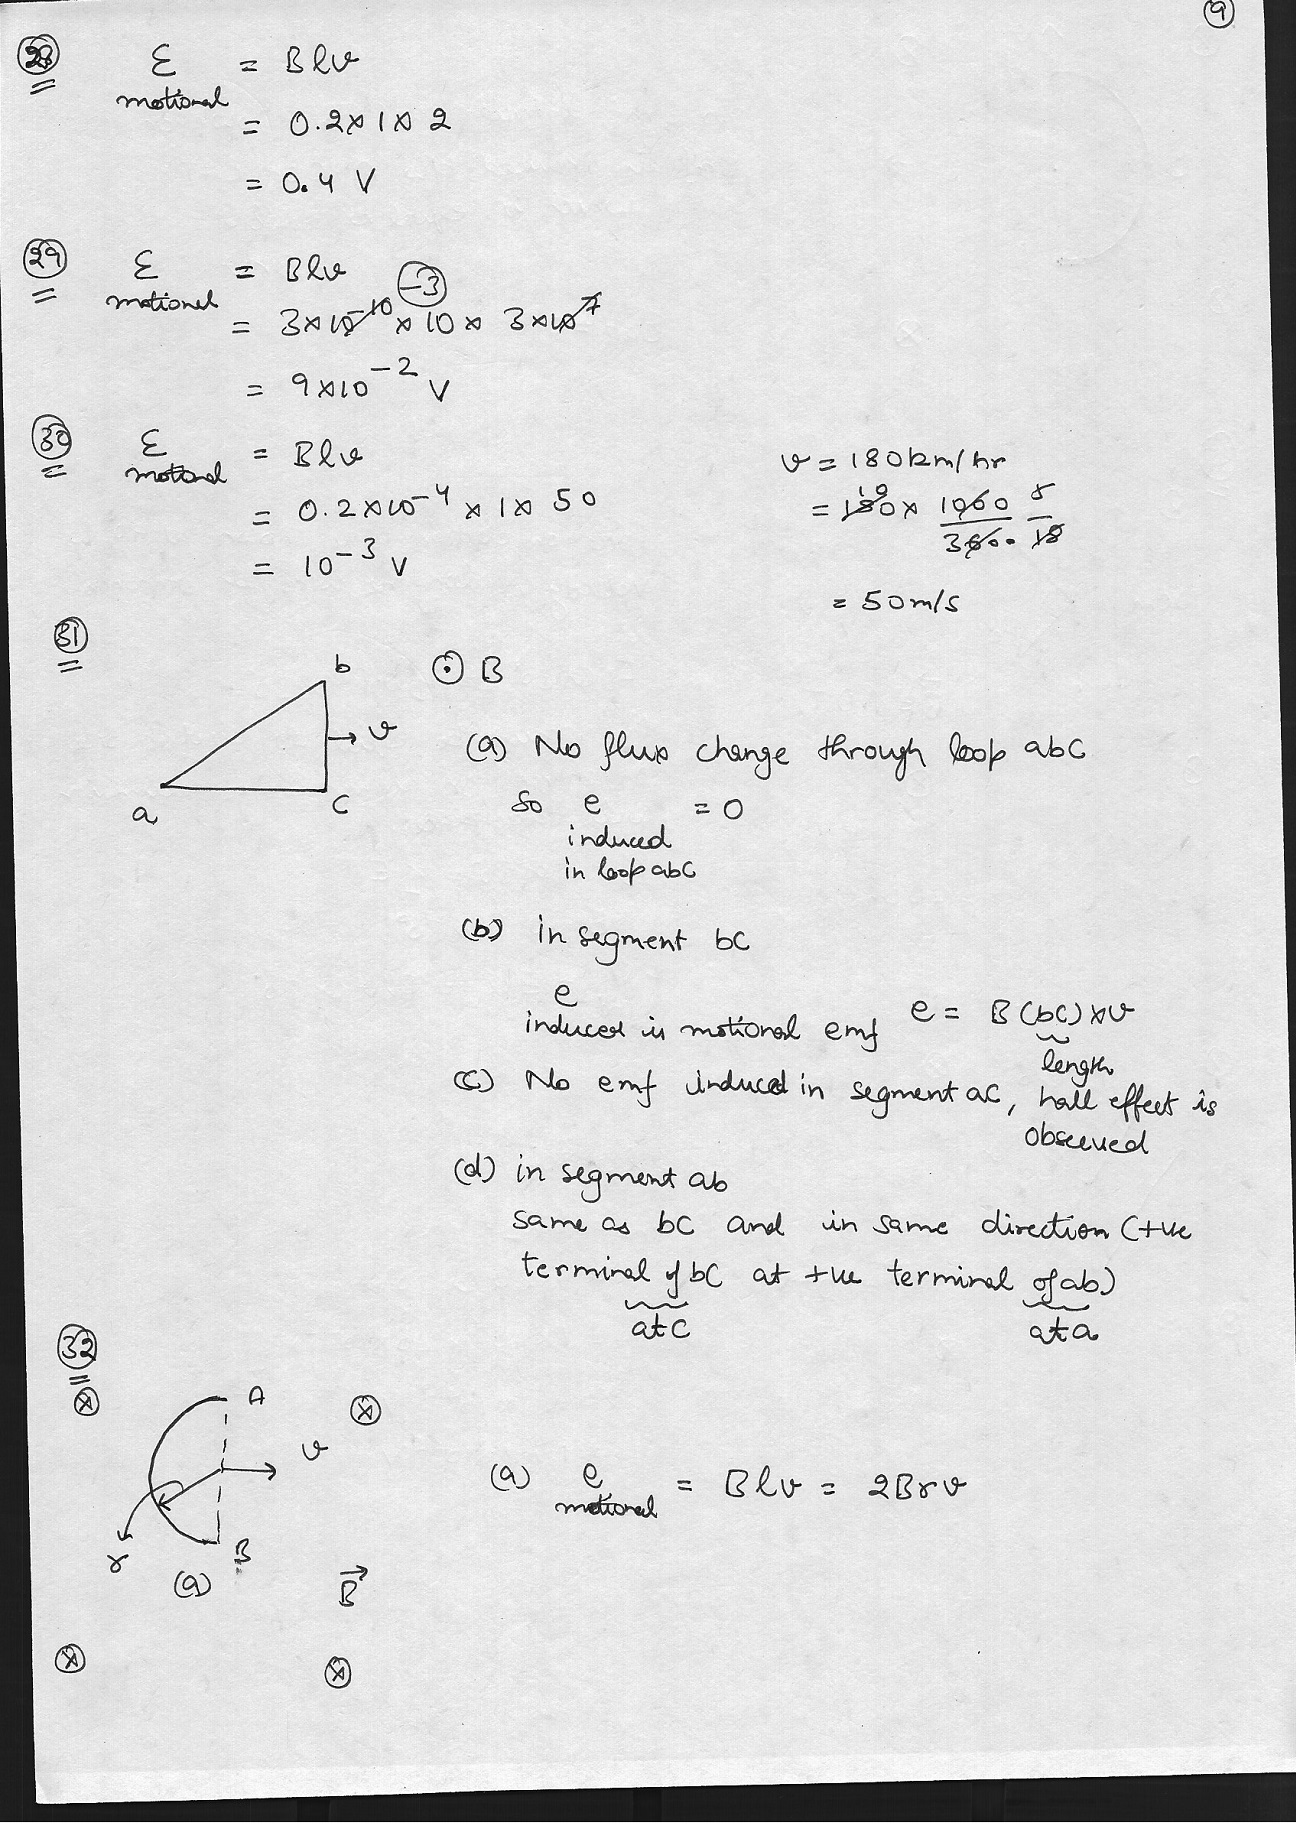 9
28 ε = Blv
motional
= 0.2 × 1 × 2
= 0.4 V
29 ε = Blv
motional
-3
= 3×10⁻¹⁰ × 10 × 3×10⁷
= 9×10⁻² V
30 ε = Blv
motional
= 0.2×10⁻⁴ × 1 × 50
= 10⁻³ V
v = 180 km/hr
10 5
= 180 × 1000/3600 18
= 50 m/s
31
b
⊙ B
v
a
c
(a) No flux change through loop abc
so e = 0
induced
in loop abc
(b) in segment bc
e
induced is motional emf e = B(bc)×v
length
(c) No emf induced in segment ac, hall effect is
observed
(d) in segment ab
same as bc and in same direction (+ve
terminal of bc at +ve terminal of ab)
at c at a
32
A
v
r
B
(a)
B⃗
(a) e = Blv = 2Brv
motional